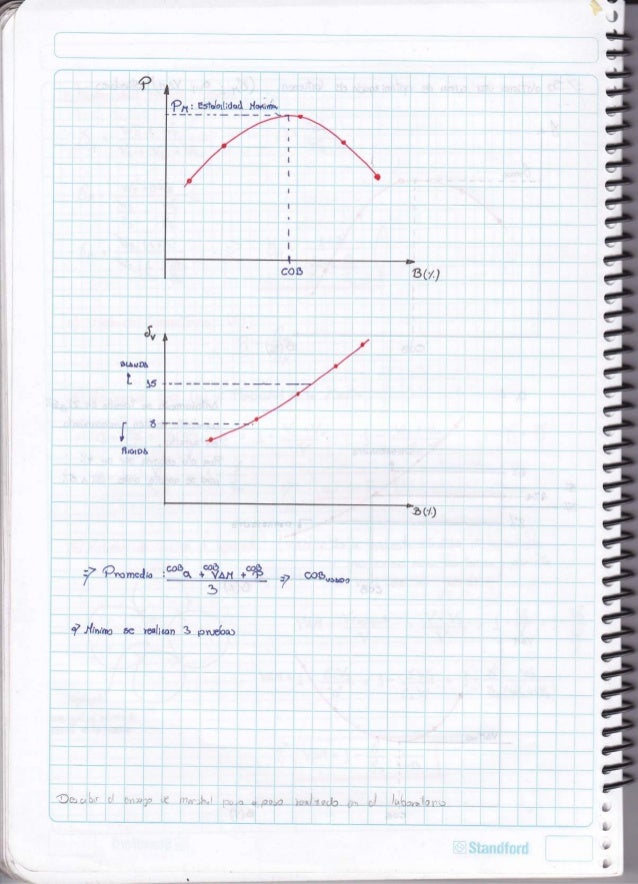 P
PM: Estabilidad Maxima
COB
B(%)
δv
BLANDA
15
8
RIGIDA
B(%)
=> Promedio : COBa + COBVAM + COBP / 3 => COBusado
=> Minimo se realizan 3 pruebas
Describir el ensayo de marshal paso a paso realizado en el laboratorio
Standford